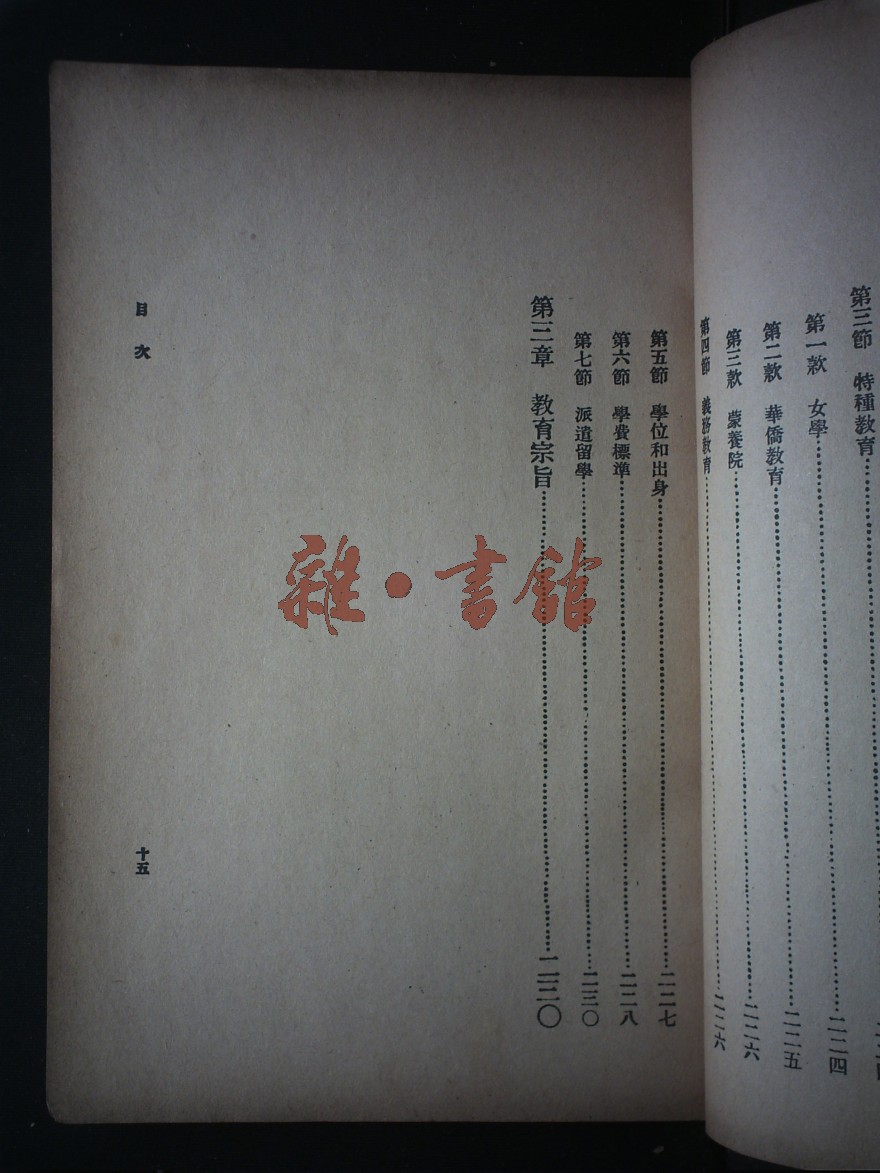 第三節 特種教育……
第一款 女學……二二四
第二款 華僑教育……二二五
第三款 蒙養院……二二六
第四節 義務教育……二二六
第五節 學位和出身……二二七
第六節 學費標準……二二八
第七節 派遣留學……二三〇
第三章 教育宗旨……二三〇
目次
十五
雜·書館